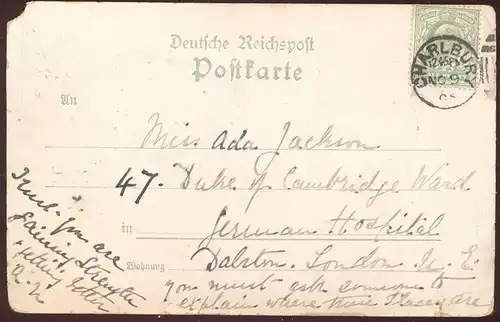 Deutsche Reichspost
Postkarte
An
Miss Ada Jackson
47. Duke of Cambridge Ward
in German Hospital
Wohnung Dalston. London N. E.
you must ask someone to
explain where these places are
Trust you are
gaining strength
+ feeling better
CHARLBURY
NO 9